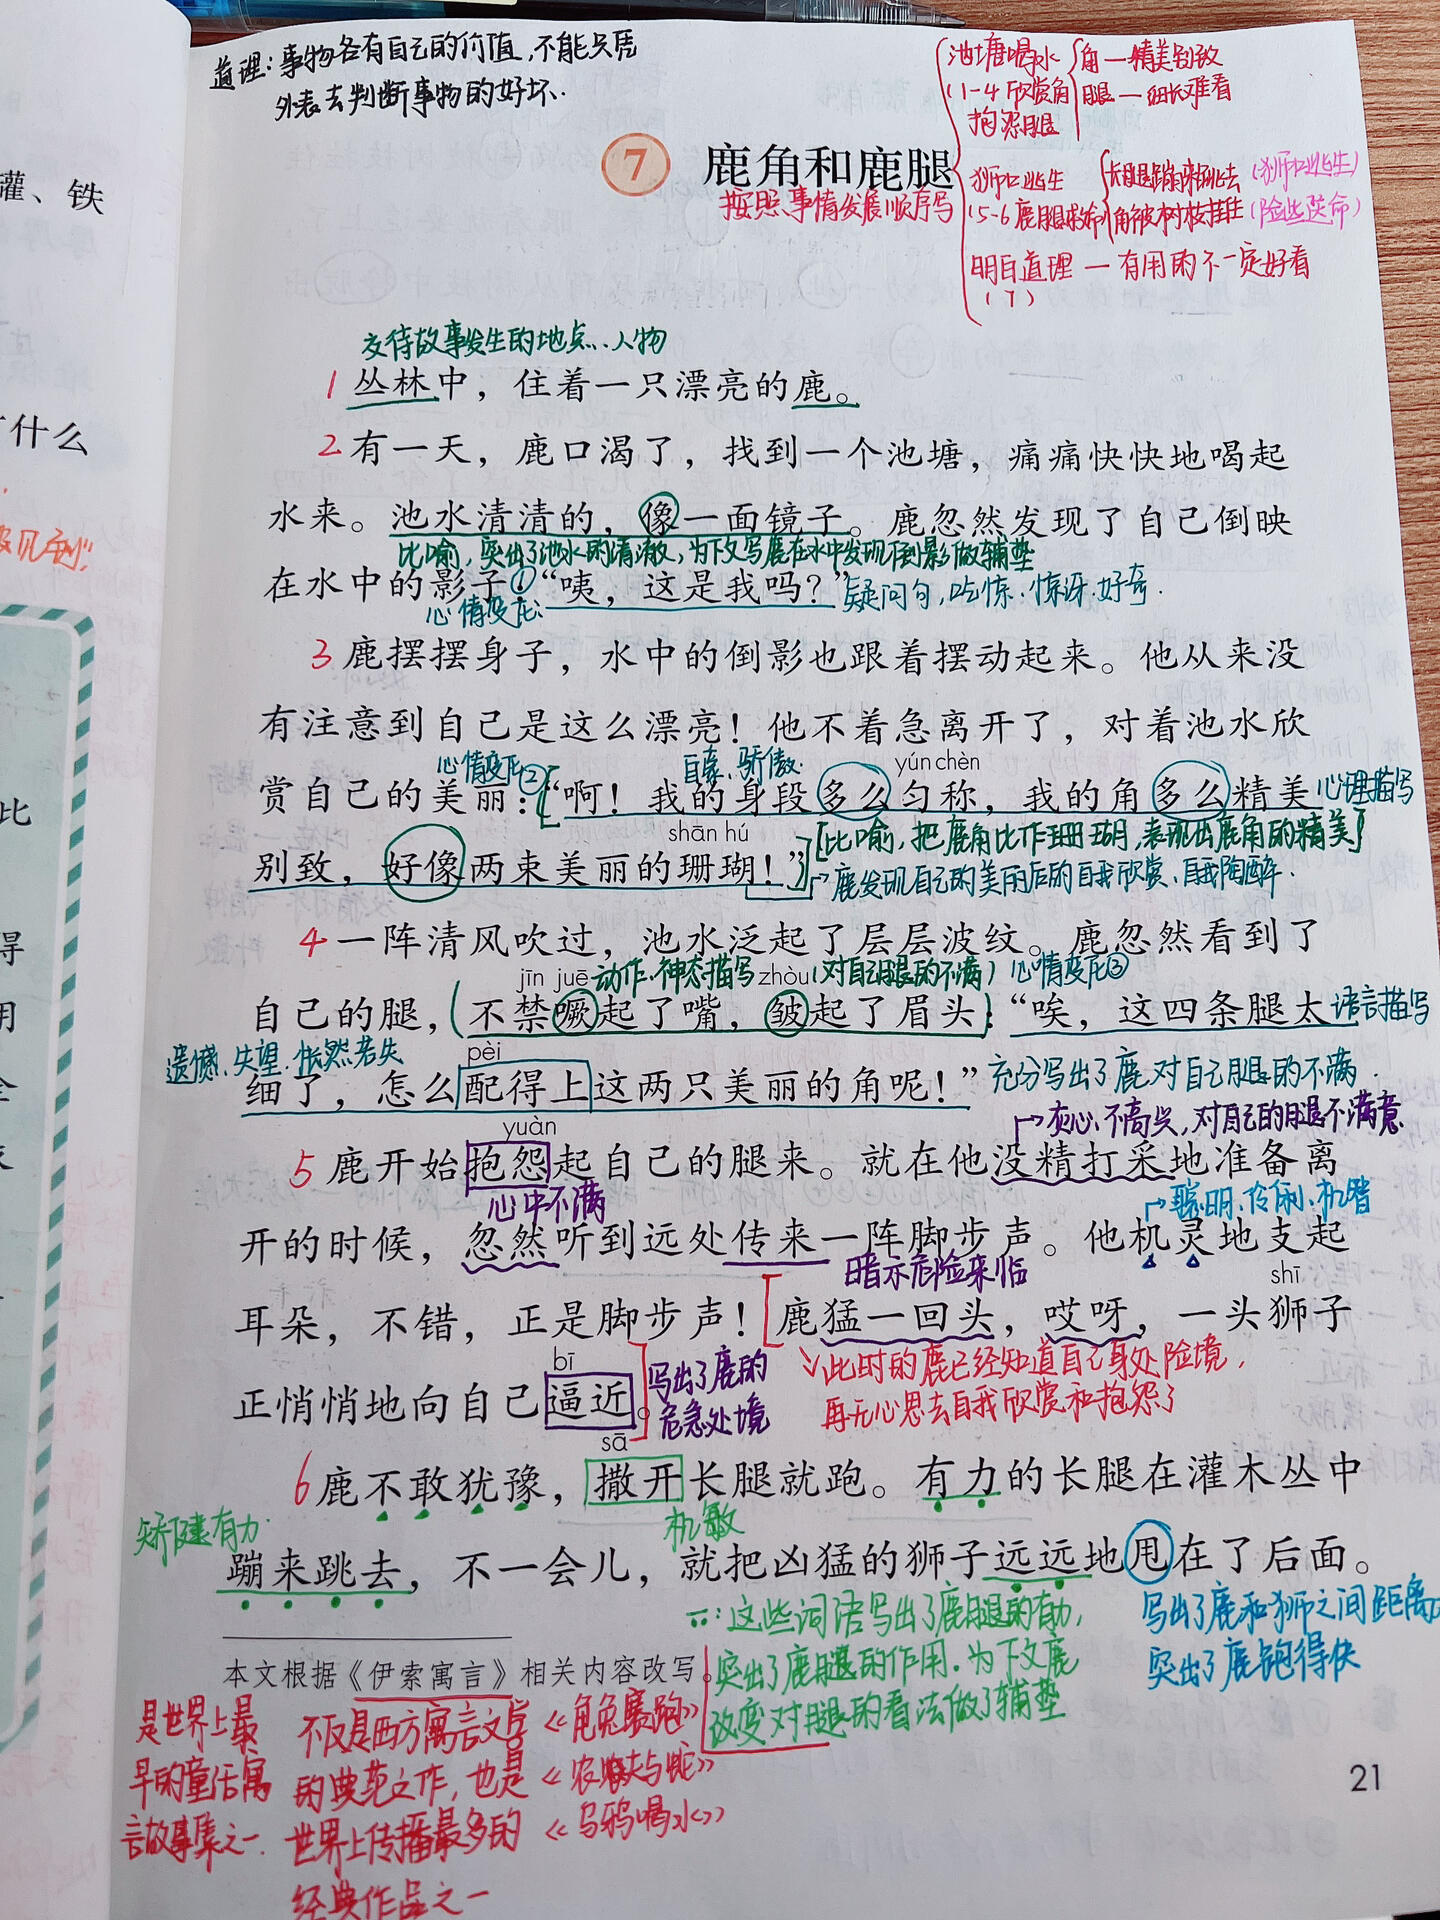 道理：事物各有自己的价值，不能只凭
外表去判断事物的好坏.
池塘喝水
(1-4 欣赏角
抱怨腿
角一精美别致
腿一细长难看
7 鹿角和鹿腿
按照事情发展顺序写
狮口逃生
(5-6 鹿腿救命
(狮口逃生)
角被树枝挂住 (险些送命)
明白道理 一 有用的不一定好看
(7)
交待故事发生的地点、人物
1 丛林中，住着一只漂亮的鹿。
2 有一天，鹿口渴了，找到一个池塘，痛痛快快地喝起
水来。池水清清的，像一面镜子。鹿忽然发现了自己倒映
比喻，突出了池水的清澈，为下文写鹿在水中发现倒影做辅垫
在水中的影子：“咦，这是我吗？”疑问句，吃惊、惊讶、好奇.
心情变化:
①
3 鹿摆摆身子，水中的倒影也跟着摆动起来。他从来没
有注意到自己是这么漂亮！他不着急离开了，对着池水欣
心情变化② 自豪、骄傲. yún chèn
赏自己的美丽：“啊！我的身段多么匀称，我的角多么精美 心理描写
shān hú [比喻，把鹿角比作珊瑚，表现出鹿角的精美]
别致，好像两束美丽的珊瑚！”
鹿发现自己的美丽后的自我欣赏、自我陶醉.
4 一阵清风吹过，池水泛起了层层波纹。鹿忽然看到了
jīn juē 动作、神态描写 zhòu (对自己腿的不满) 心情变化③
自己的腿，不禁噘起了嘴，皱起了眉头：“唉，这四条腿太 语言描写
遗憾、失望、怅然若失 pèi
细了，怎么配得上这两只美丽的角呢！”充分写出了鹿对自己腿的不满.
灰心、不高兴，对自己的腿不满意
yuàn
5 鹿开始抱怨起自己的腿来。就在他没精打采地准备离
心中不满
聪明、伶俐、机智
开的时候，忽然听到远处传来一阵脚步声。他机灵地支起
暗示危险来临
shī
耳朵，不错，正是脚步声！鹿猛一回头，哎呀，一头狮子
bī
正悄悄地向自己逼近。
写出了鹿的
危急处境
此时的鹿已经知道自己身处险境，
再无心思去自我欣赏和抱怨了
sā
6 鹿不敢犹豫，撒开长腿就跑。有力的长腿在灌木丛中
矫健有力. 机敏
蹦来跳去，不一会儿，就把凶猛的狮子远远地甩在了后面。
这些词语写出了鹿腿的有力，
突出了鹿腿的作用.为下文鹿
改变对腿的看法做了辅垫
写出了鹿和狮之间距离
突出了鹿跑得快
本文根据《伊索寓言》相关内容改写。
是世界上最
早的童话寓
言故事集之一.
不仅是西方寓言文学
的典范之作，也是
世界上传播最多的
经典作品之一
《龟兔赛跑》
《农夫与蛇》
《乌鸦喝水》
21
罐、铁
什么
此
得
用
全